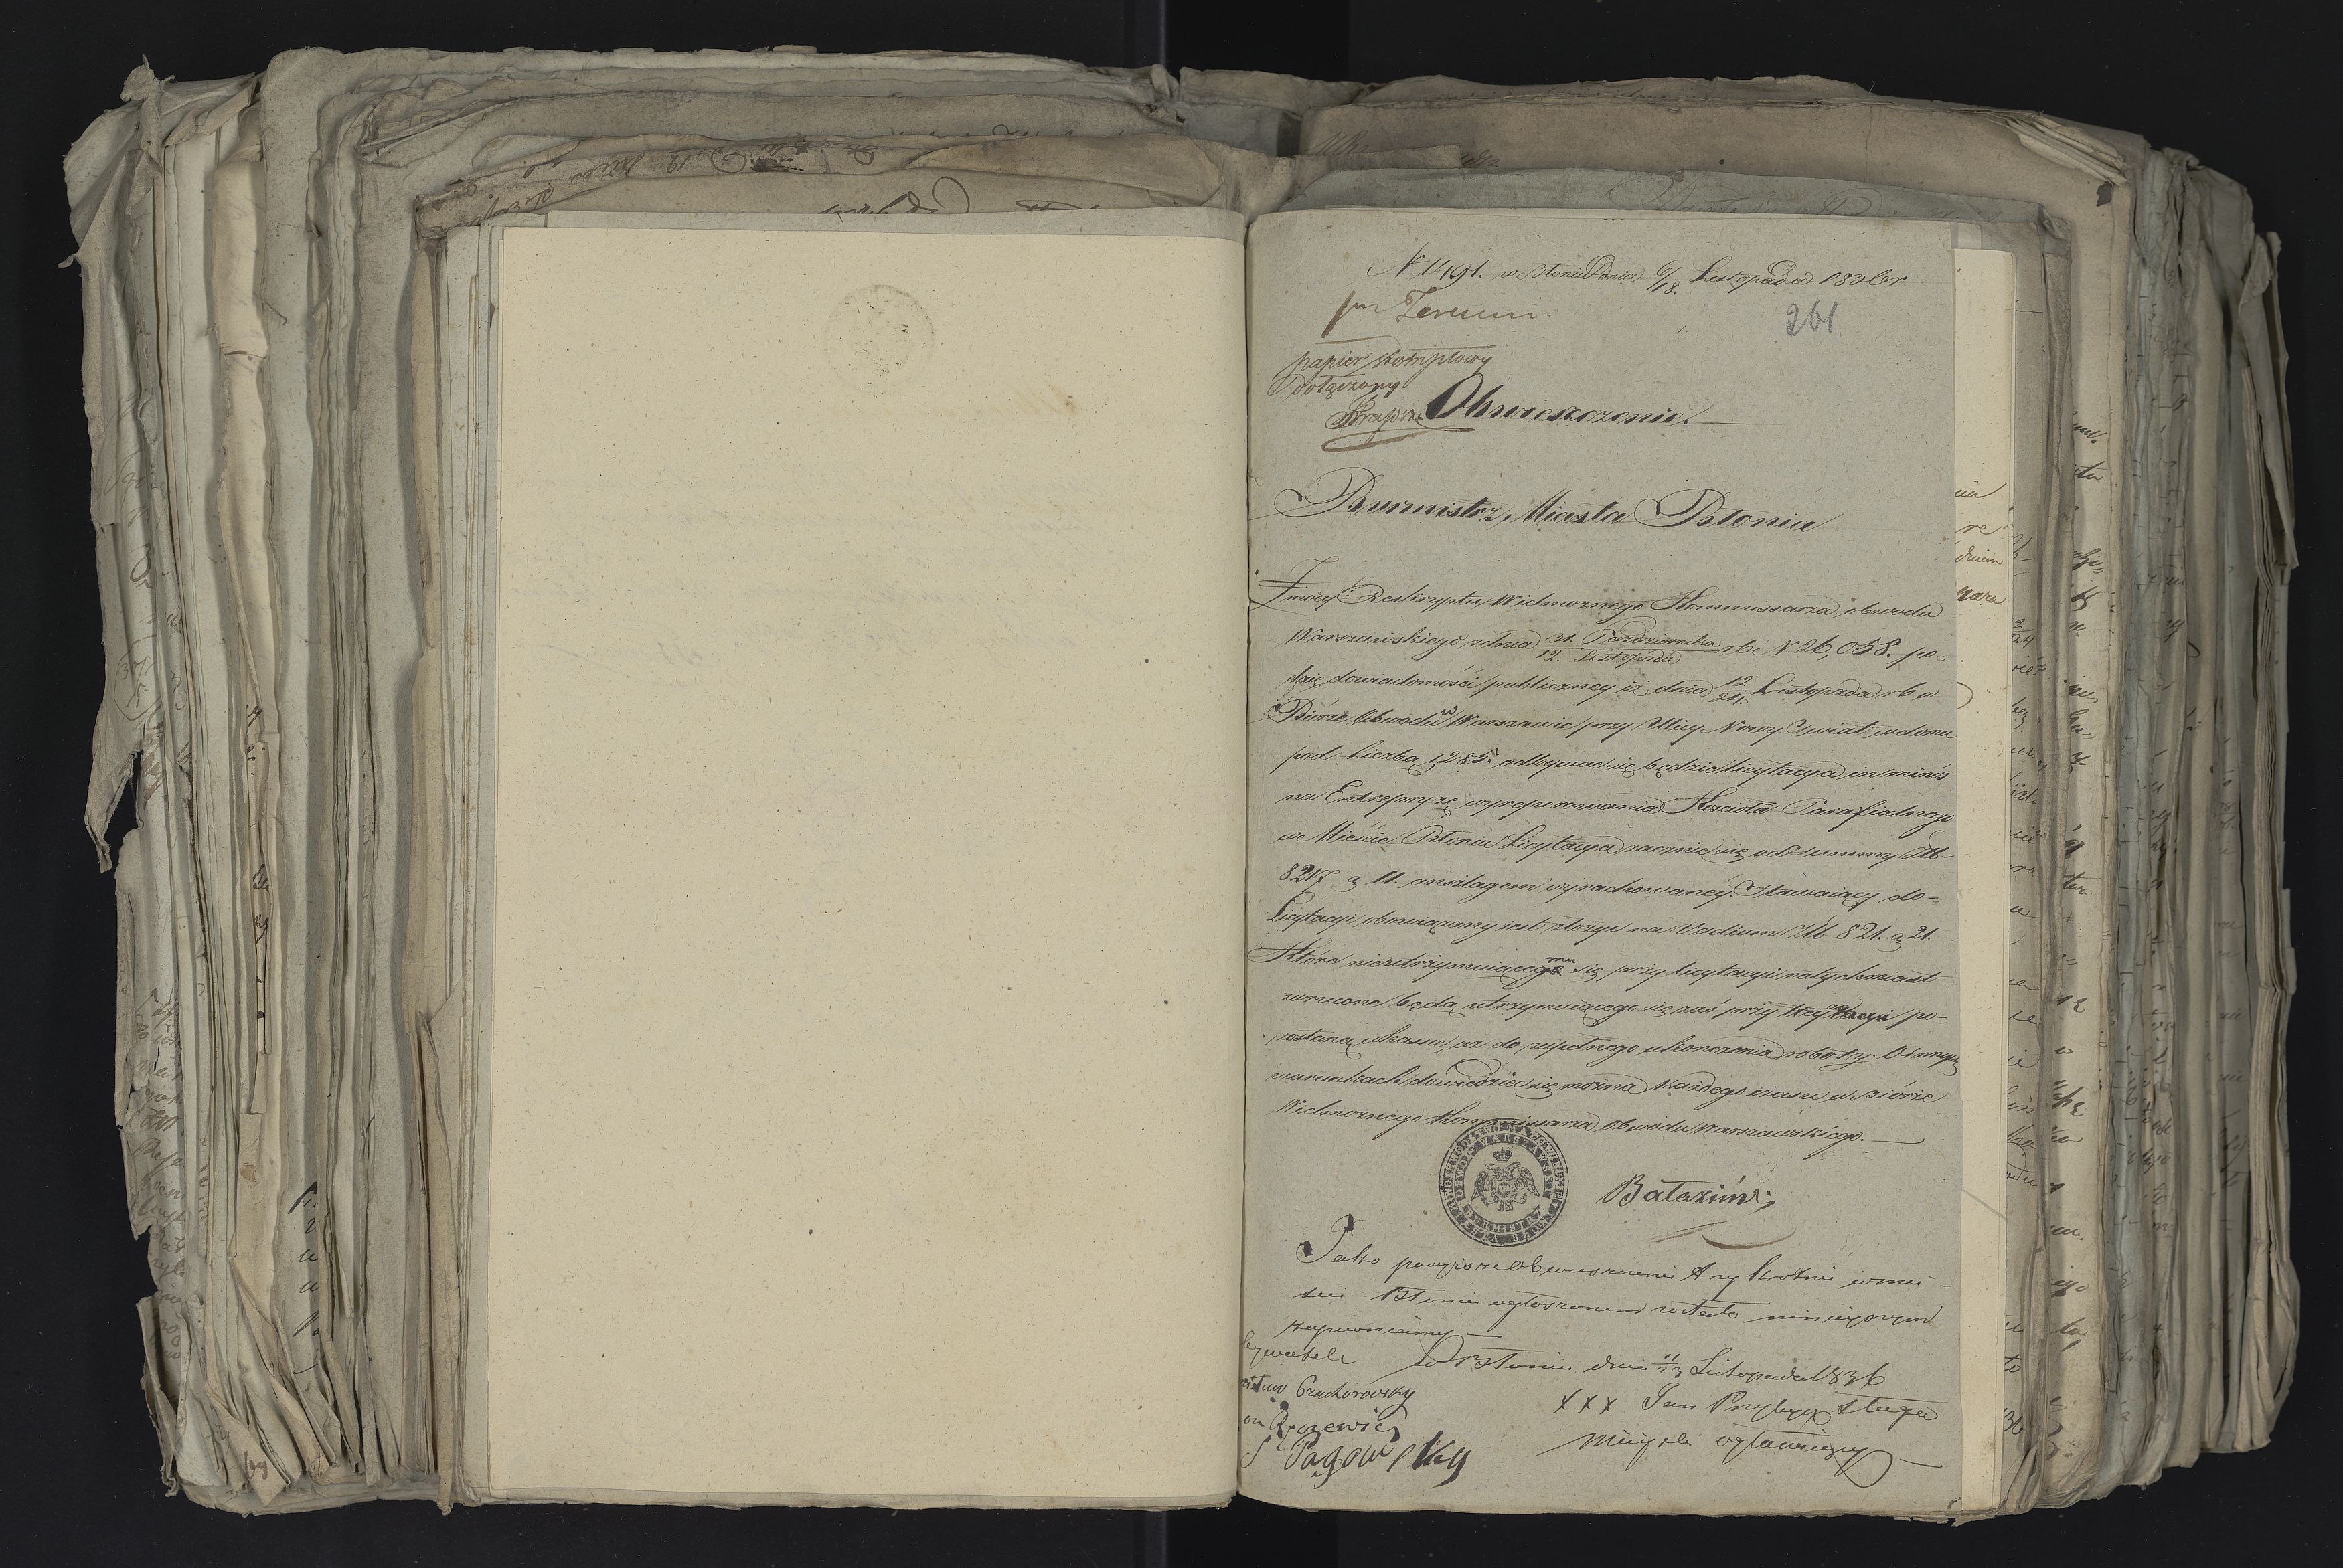 N 1491. w Błoniu Dnia 6/18. Listopada 1836r
261
papier stemplowy
dołączony
Obwieszczenie.
Burmistrz Miasta Błonia
Z mocy Reskryptu Wielmożnego Kommissarza obwodu
Warszawskiego zdnia 31. Października / 12. Listopada rb N 26,058. po=
daię dowiadomości publiczney iż dnia 12/24. Listopada rb w
Biórze Obwodu w Warszawie przy Ulicy Nowy Swiat wdomu
pod Liczbą 1285. odbywać się będzie licytacya in minus
na Entrepryzę wyreperowania Kościoła Parafialnego
we Mieście Błoniu Licytacya zacznie się od summy Złł
8217 g 11. anszlagem wyrachowaney. Stawaiący do=
Licytacyi obowiązany iest złożyć na Vadium Złł 821. g 21.
Które nieutrzymuiącemu się przy licytacyi natychmiast
zwrucone będą utrzymuiącego się zaś przy licytacyi po=
zostaną wkassie, aż do zupełnego ukonczenia roboty. O innych
warunkach dowiedzieć się można każdego czasu w Biórze
Wielmożnego Kommissarza Obwodu Warszawskiego.
WOIEWÓDZTWO MAZOWIECKIE
OBWÓD WARSZAWSKI
BURMISTRZ
MIASTA BŁONIA
Jako powyższe Obwieszczenie trzy krotnie wmie=
scie Błoniu ogłoszonem zostało ninieyszym
zapewniamy
w Błoniu dnia 11/23 Listopada 1836
Czachorowsky
XXX Jan Przybysz sługa
mieyski ogłaszaiący
S Pągowsky